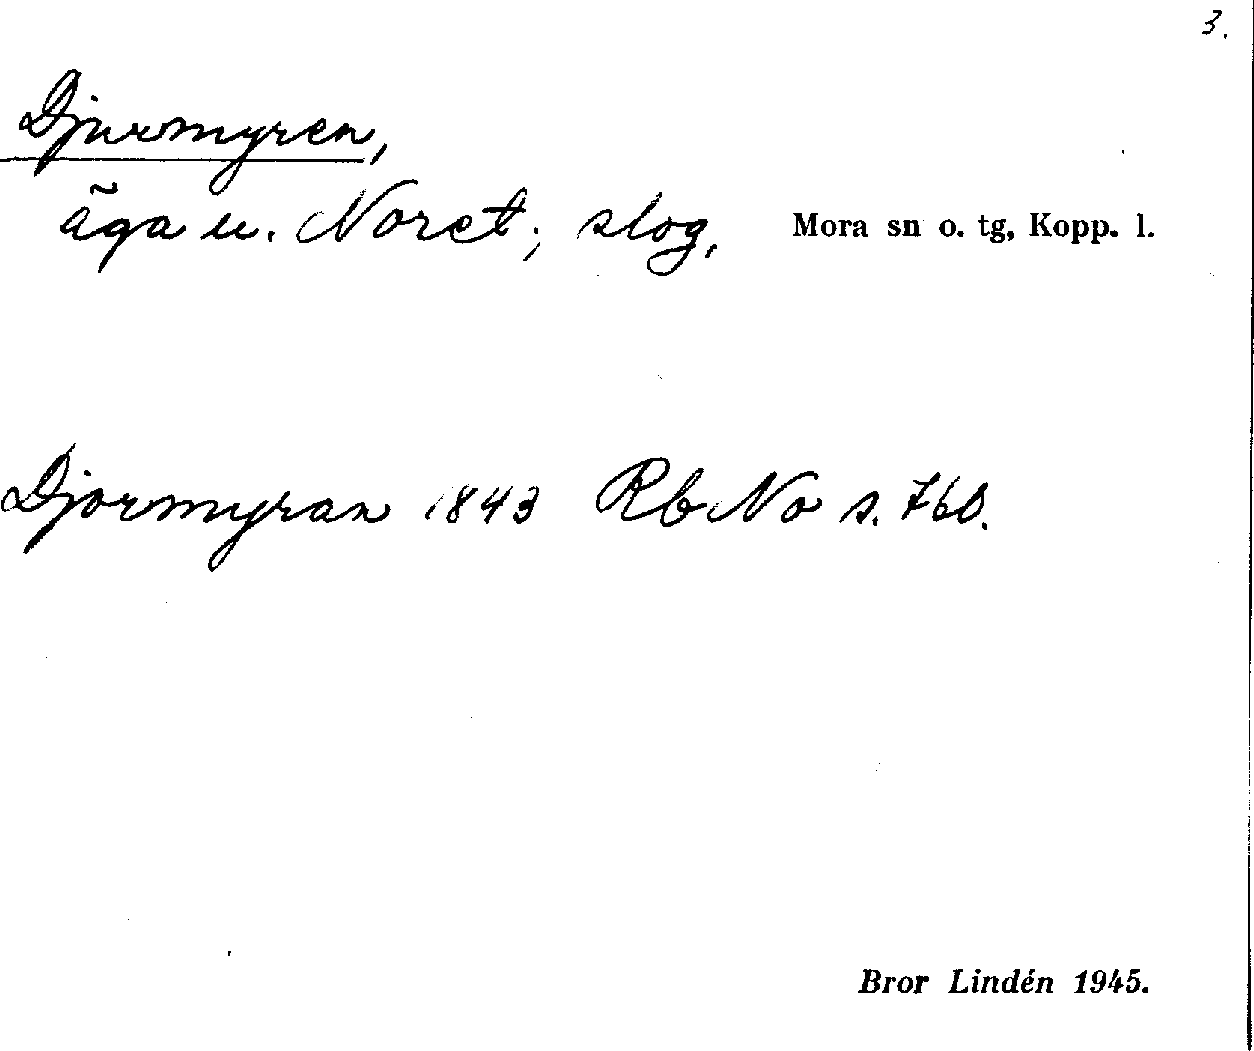 3.
Djurmyren,
äga u. Noret; slog, Mora sn o. tg, Kopp. l.
Djormyran 1843 Rb No s. 760.
Bror Lindén 1945.